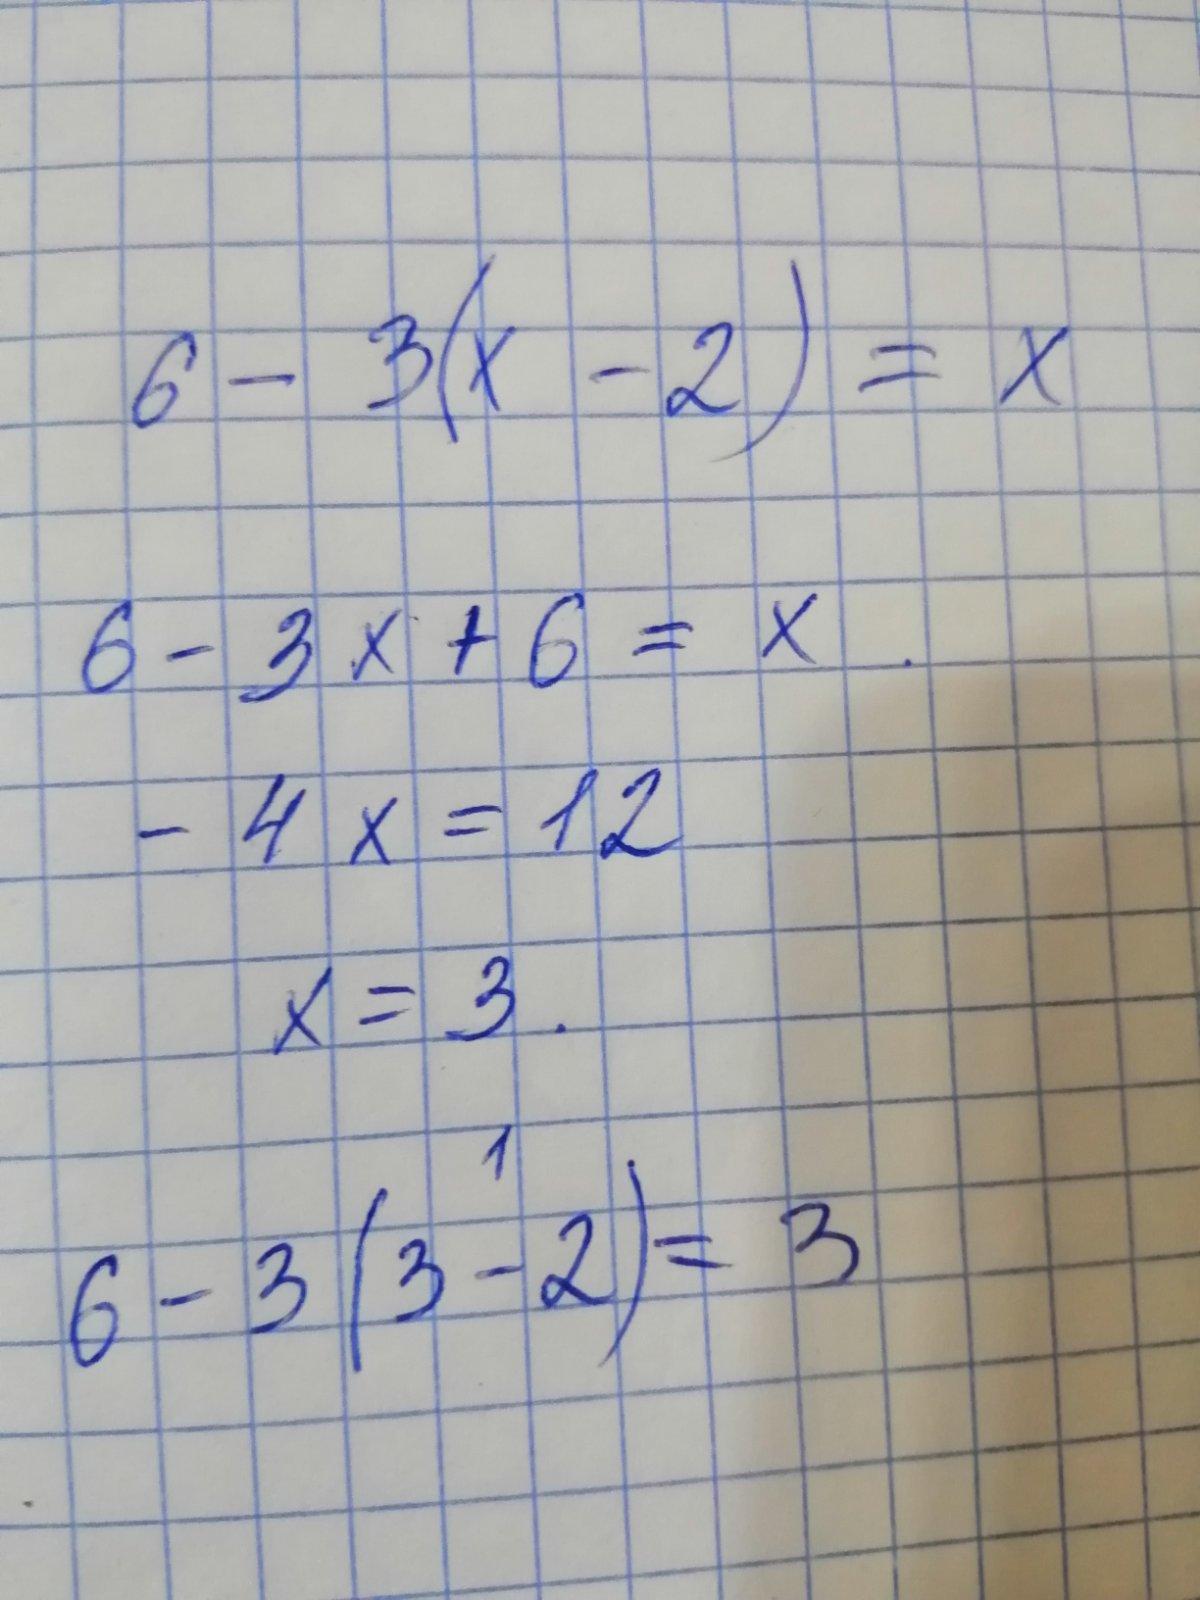 6 - 3(x - 2) = x
6 - 3x + 6 = x .
- 4x = 12
x = 3 .
1
6 - 3(3 - 2) = 3